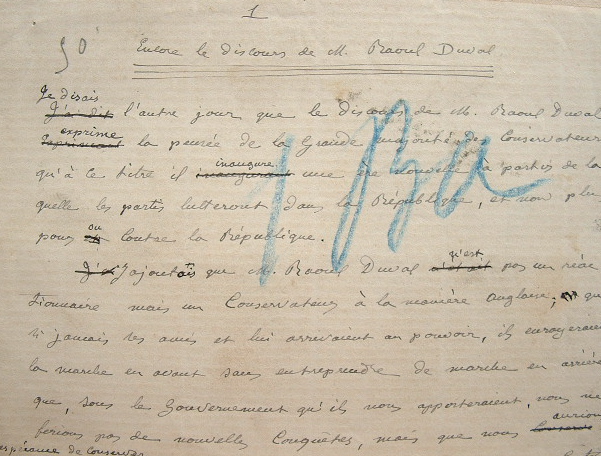 1
Encore le discours de M. Raoul Duval
Je disais
J'ai dit l'autre jour que le discours de M. Raoul Duval
exprime
exprimant la pensée de la Grande majorité des Conservateurs
inaugure
qu'à ce titre il inaugurait une ère nouvelle à partir de la
quelle les partis lutteront dans la République, et non plus
ou
pour et contre la République.
qu'est
J'ai J'ajoutais que M. Raoul Duval n'était pas un réac
tionnaire mais un Conservateur à la manière anglaise; que
si jamais ses amis et lui arrivaient au pouvoir, ils enrayeraient
la marche en avant sans entreprendre de marche en arrière
que, sous le Gouvernement qu'ils nous apporteraient, nous ne
aurions
ferions pas de nouvelles Conquêtes, mais que nous
espérance de conserver